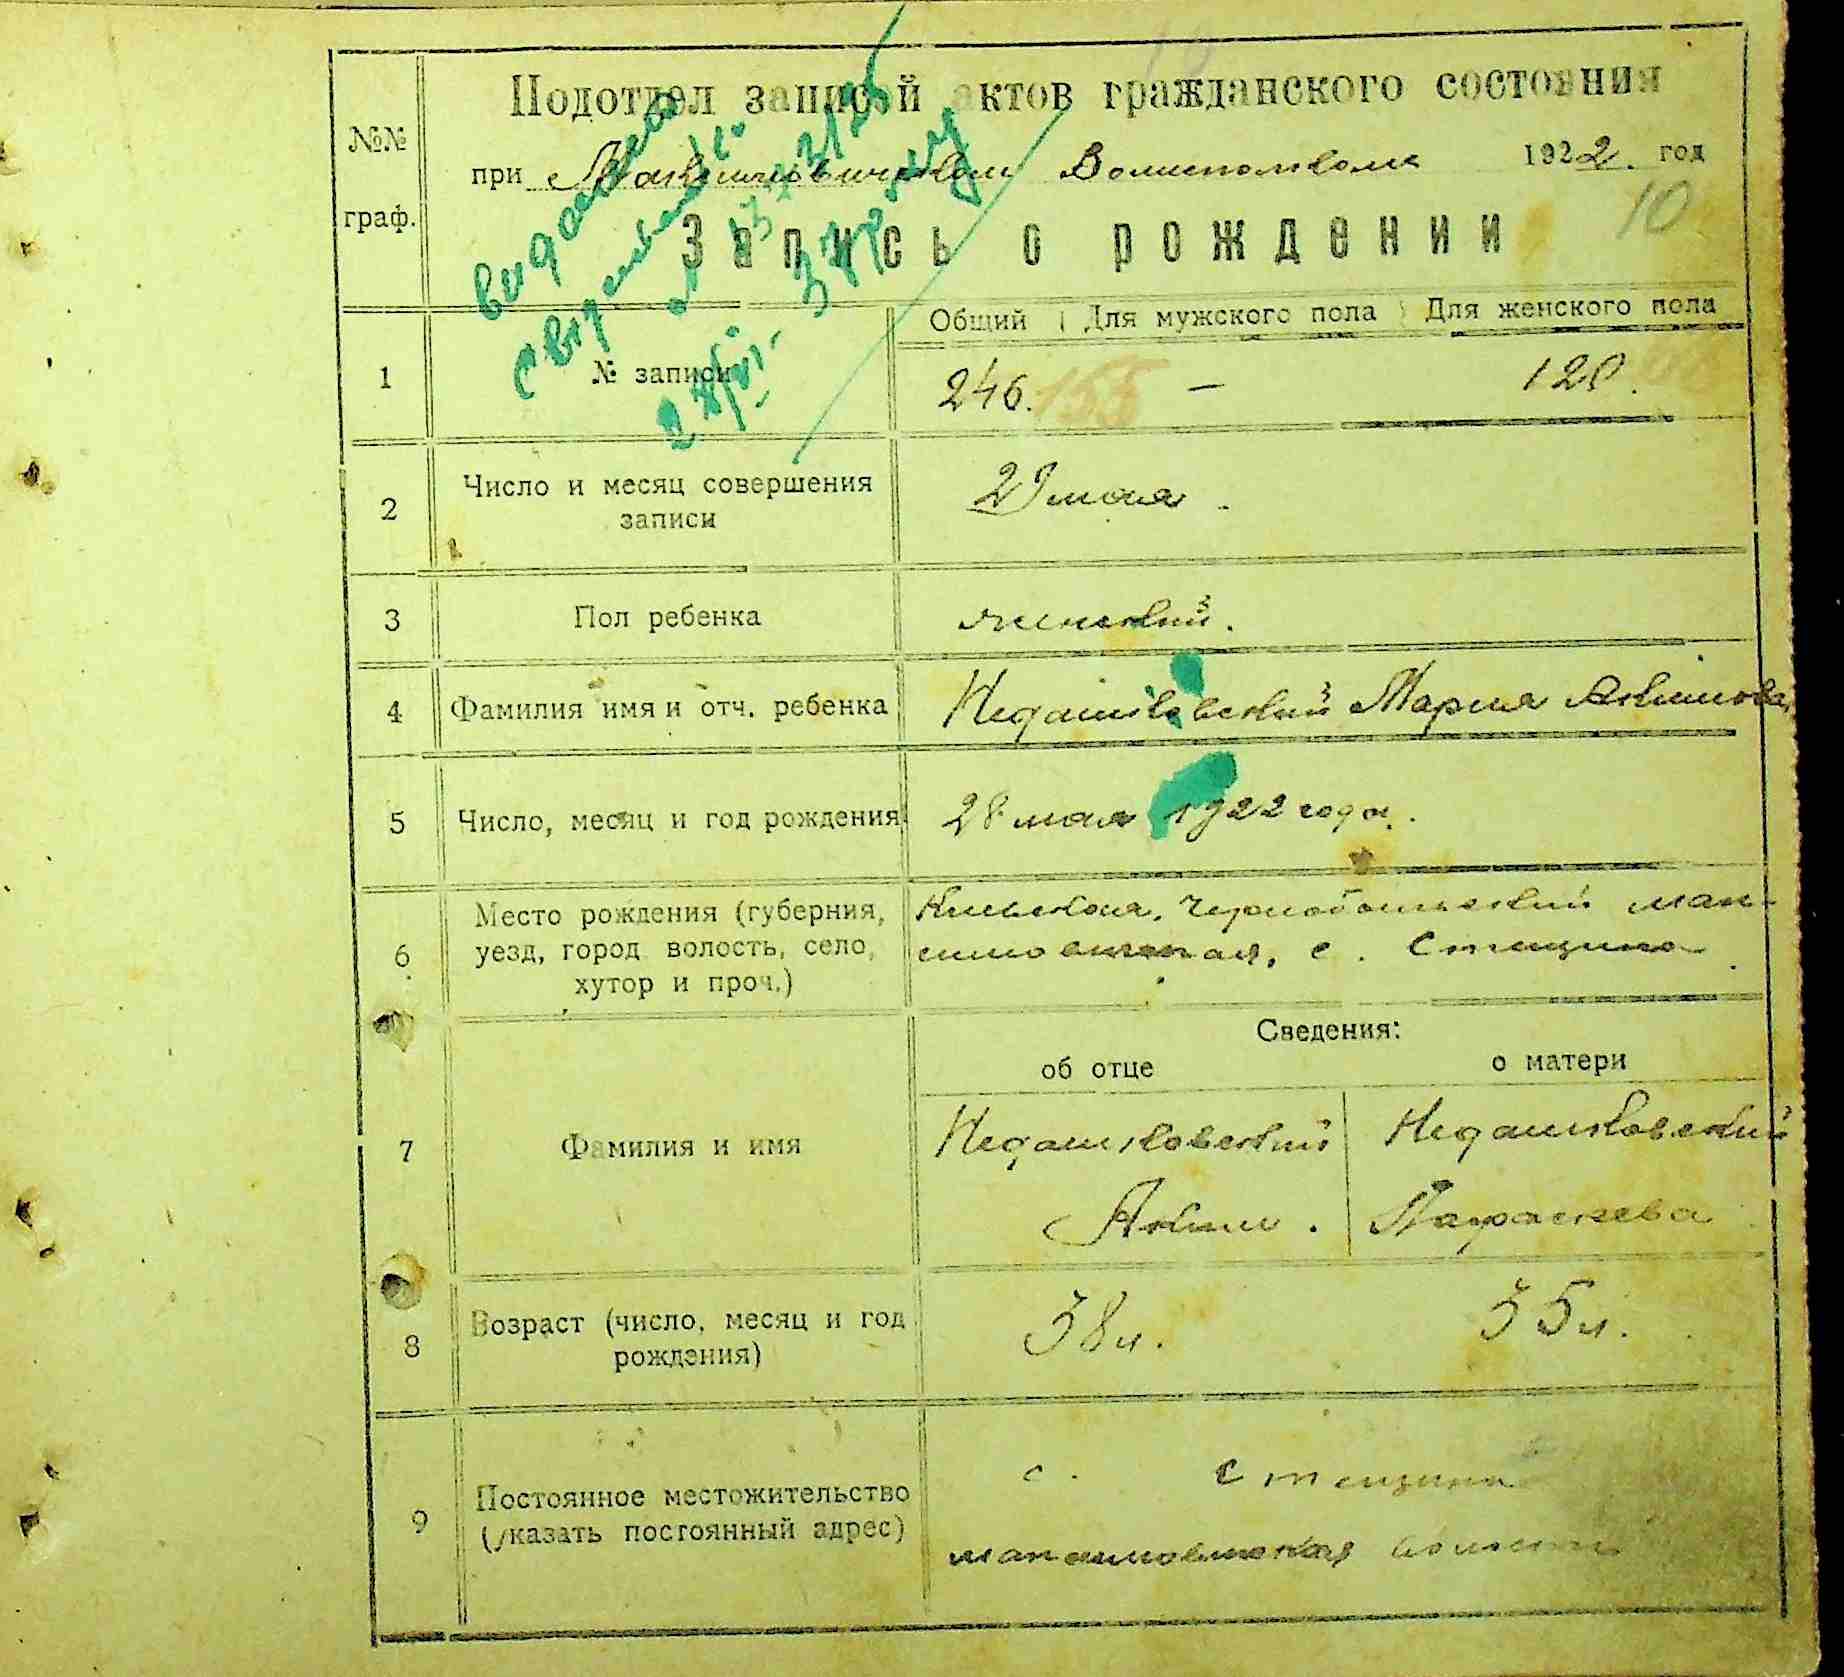 №№ граф.
Подотдел записей актов гражданского состояния
при Максимовическом Волисполкоме 1922. год
10
Запись о рождении
Общий Для мужского пола Для женского пола
1 № записи 246. 155 –
2 Число и месяц совершения записи
29 мая.
3 Пол ребенка женский.
4 Фамилия имя и отч. ребенка Недашковский Мария Акимова
5 Число, месяц и год рождения 28 мая 1922 года.
6 Место рождения (губерния, уезд, город волость, село, хутор и проч.)
Киевская, Чернобыльский мак-
симовичская, с. Стещина
Сведения:
об отце о матери
7 Фамилия и имя
Недашковский Недашковский
Аким. Параскева
8 Возраст (число, месяц и год рождения)
38 л. 35 л.
9 Постоянное местожительство (указать постоянный адрес)
с. Стещина
максимовичская волости